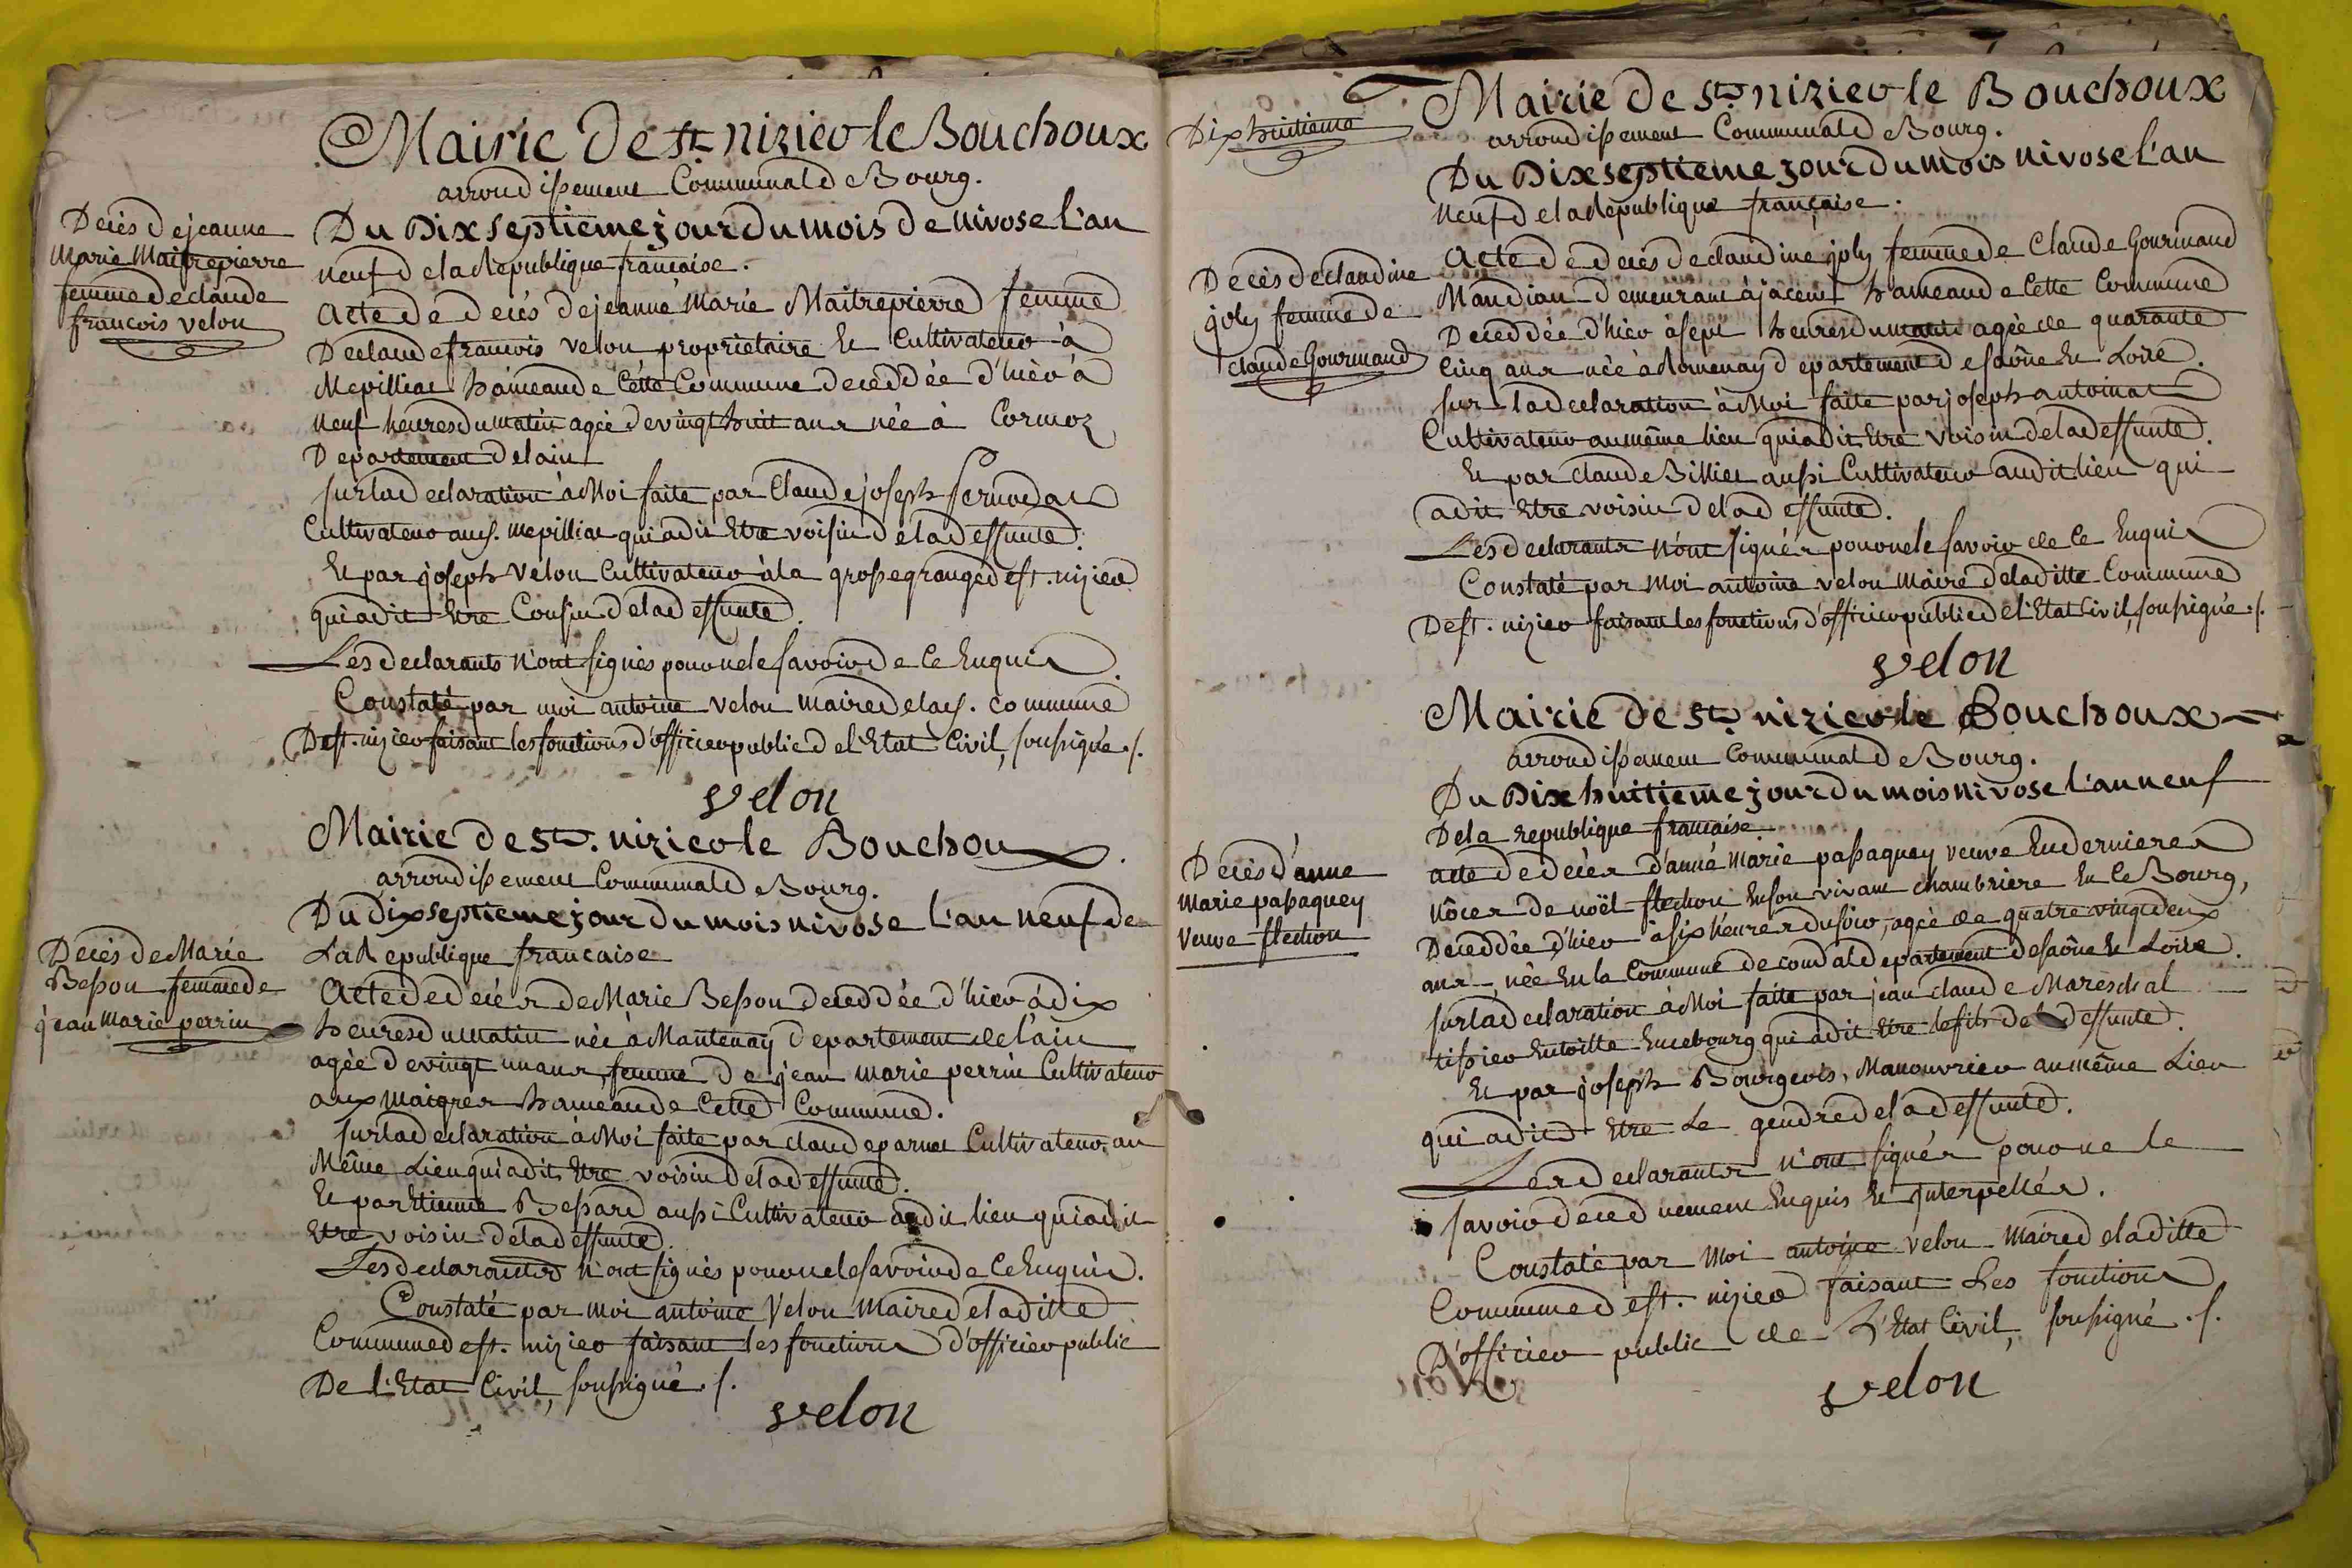 Mairie De St. nizier le Bouchoux
arrondissement Communal de Bourg.
Decès de jeanne
Marie Maitrepierre
femme de claude
francois velon
Du Dix septieme jour du mois de nivose l'an
neuf de la republique française.
Acte de decés de jeanne Marie Maitrepierre femme
De claude francois velon proprietaire et Cultivateur à
Mepilliat hameau de Cette Commune deceddée d'hier à
neuf heures du matin agée de vingt huit ans née à Cormoz
Departement de lain
sur la declaration à Moi faite par Claude joseph
Cultivateur auds. mepilliat qui a dit Etre voisin de la deffunte.
Et par joseph Velon Cultivateur à la grosse grange de st. nizier
qui a dit Etre Cousin de la deffunte.
Les declarants n'ont signés pour ne le savoir de Ce Enquis.
Constaté par moi antoine velon maire de las. commune
De st. nizier faisant les fonctions d'officier public de l'Etat Civil, soussigné ./.
velon
Mairie de St. nizier le Bouchoux.
arrondissement Communal de Bourg.
Decès de Marie
Besson femme de
jean marie perrin
Du dix septieme jour du mois nivose l'an neuf de
La Republique francaise
Acte de decés de Marie Besson deceddée d'hier à dix
heures du matin née à Mantenay Departement de l'ain
agée de vingt un ans, femme de jean marie perrin Cultivateur
aux maigres hameau de Cette Commune.
sur la declaration à Moi faite par claude parnet Cultivateur au
Même Lieu qui a dit Etre voisin de la deffunte.
Et par Etienne Bessard aussi Cultivateur audit lieu qui a dit
Etre voisin de la deffunte.
Les declarants n'ont signés pour ne le savoir de Ce Enquis.
Constaté par moi antoine Velon Maire de la ditte
Commune de st. nizier faisant les fonctions d'officier public
De l'Etat Civil, soussigné ./.
velon
Dix huitieme
Mairie De St. nizier le Bouchoux
arrondissement Communal de Bourg.
Du Dix septieme jour du mois nivose l'an
neuf de la republique française.
Decès de claudine
joly femme de
claude Gourmand
Acte de decés de claudine joly femme de Claude Gourmand
Mandian demeurant à jacent hameau de Cette Commune
Deceddée d'hier à sept heures du matin agée de quarante
Cinq ans née à Romenay departement de saône Et Loire.
sur la declaration à Moi faite par joseph antoinat
Cultivateur au même lieu qui a dit Etre voisin de la deffunte.
Et par claude Billiet aussi Cultivateur audit lieu qui
a dit Etre voisin de la deffunte.
Les declarants n'ont signés pour ne le savoir de Ce Enquis
Constaté par moi antoine velon Maire de la ditte Commune
De st. nizier faisant les fonctions d'officier public de l'Etat Civil, soussigné ./.
velon
Mairie de St. nizier le Bouchoux
arrondissement Communal de Bourg.
Du Dix huitieme jour du mois nivose l'an neuf
De la republique francaise.
Decès d'anne
Marie passaquey
Veuve flechon
acte de decès d'anne marie passaquey veuve En dernieres
nôces de noël flechon En son vivant chambriere En Ce Bourg,
Deceddée d'hier a six heures du soir, agée de quatre vingt deux
ans née En la Commune de condal departement de saône Et Loire.
sur la declaration à Moi faite par jean claude Mareschal
tissier En toille En ce bourg qui a dit Etre le fils de la deffunte.
Et par joseph Bourgeois, Manouvrier au même Lieu
qui a dit Etre Le gendre de la deffunte.
Les declarants n'ont signés pour ne le
savoir de ce duement Enquis Et jnterpellés.
Constaté par Moi antoine velon Maire de la ditte
Commune de st. nizier faisant Les fonctions
D'officier public de L'Etat Civil, soussigné ./.
velon